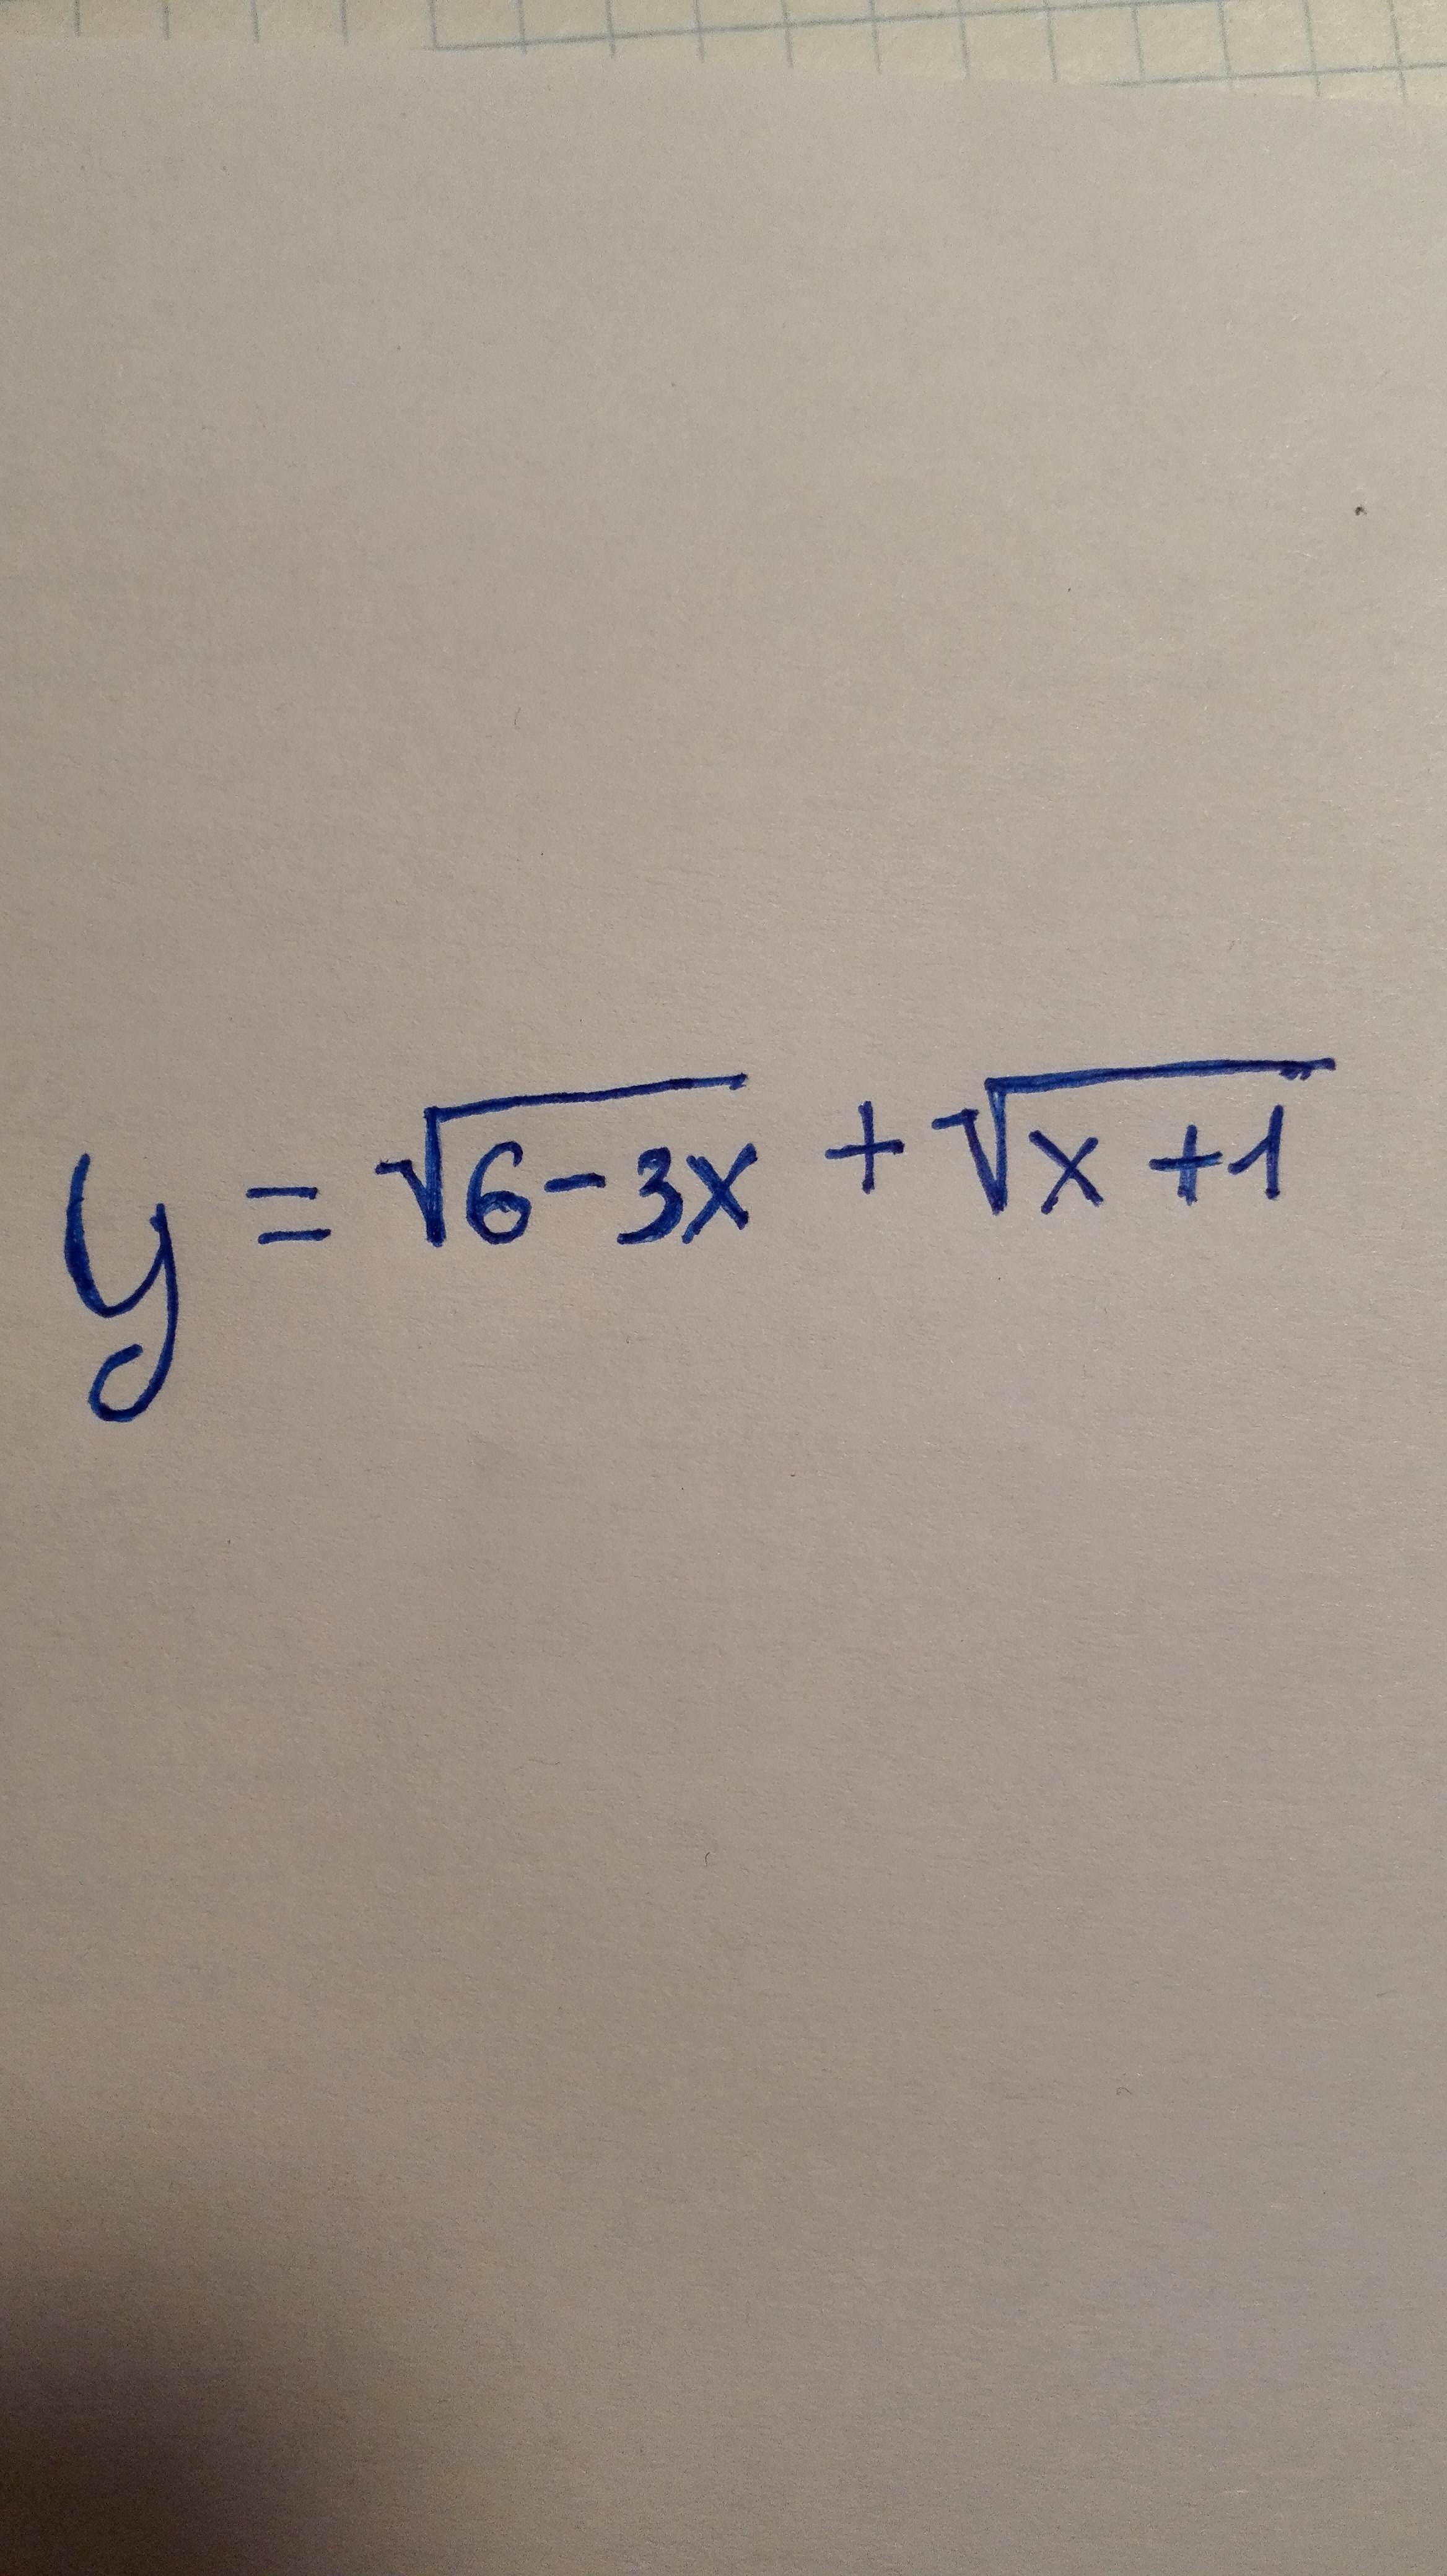 y = √6-3x + √x+1